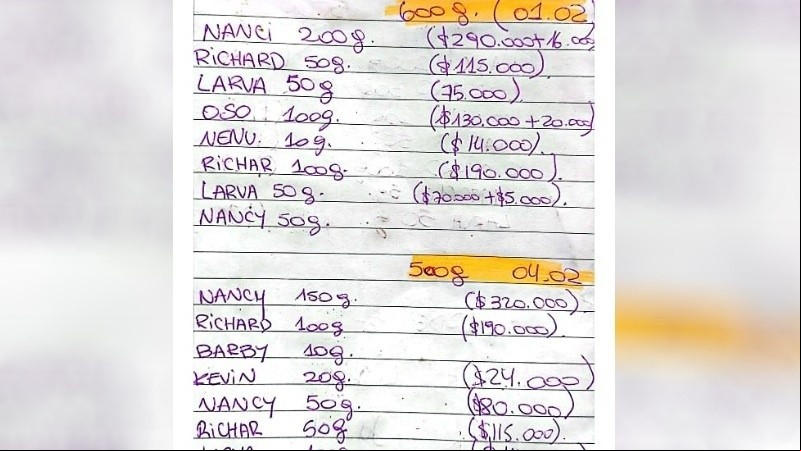 600g. (01.02)
NANCi 200g. ($290.000+16.000
RiCHARD 50g. ($115.000)
LARVA 50g (75.000)
OSO 100g. ($130.000+20.000)
NENU. 10g. ($14.000).
RiCHAR 100g. ($190.000).
LARVA 50g. ($70.000+$5.000).
NANCY 50g.
500g 04.02
NANCY 150g. ($320.000)
RiCHARD 100g ($190.000).
BARBY 10g.
KEViN 20g. ($24.000)
NANCY 50g. ($80.000)
RiCHAR 50g ($115.000).